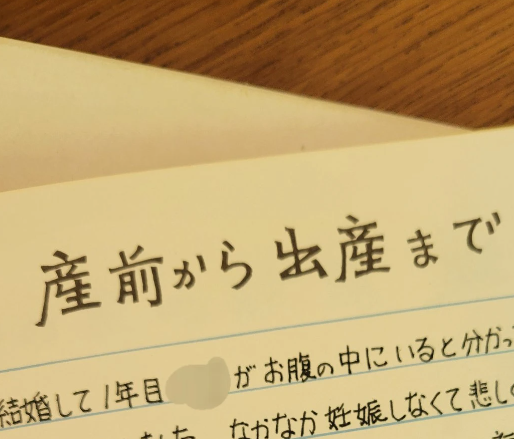 産前から出産まで
結婚して1年目 がお腹の中にいると分かっ
なかなか妊娠しなくて悲し